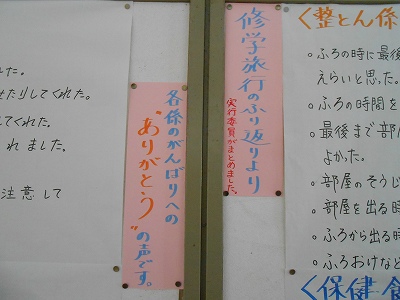 修学旅行のふり返りより
実行委員がまとめました。
各係のがんばりへの
"ありがとう"
の声です。
<整とん係
○ふろの時に最後
えらいと思った。
○ふろの時間を
○最後まで部
よかった。
○部屋のそうじ
○部屋を出る時
○ふろから出る時
○ふろおけなど
<保健食
れた。
せたりしてくれた。
てくれた。
れました。
注意して